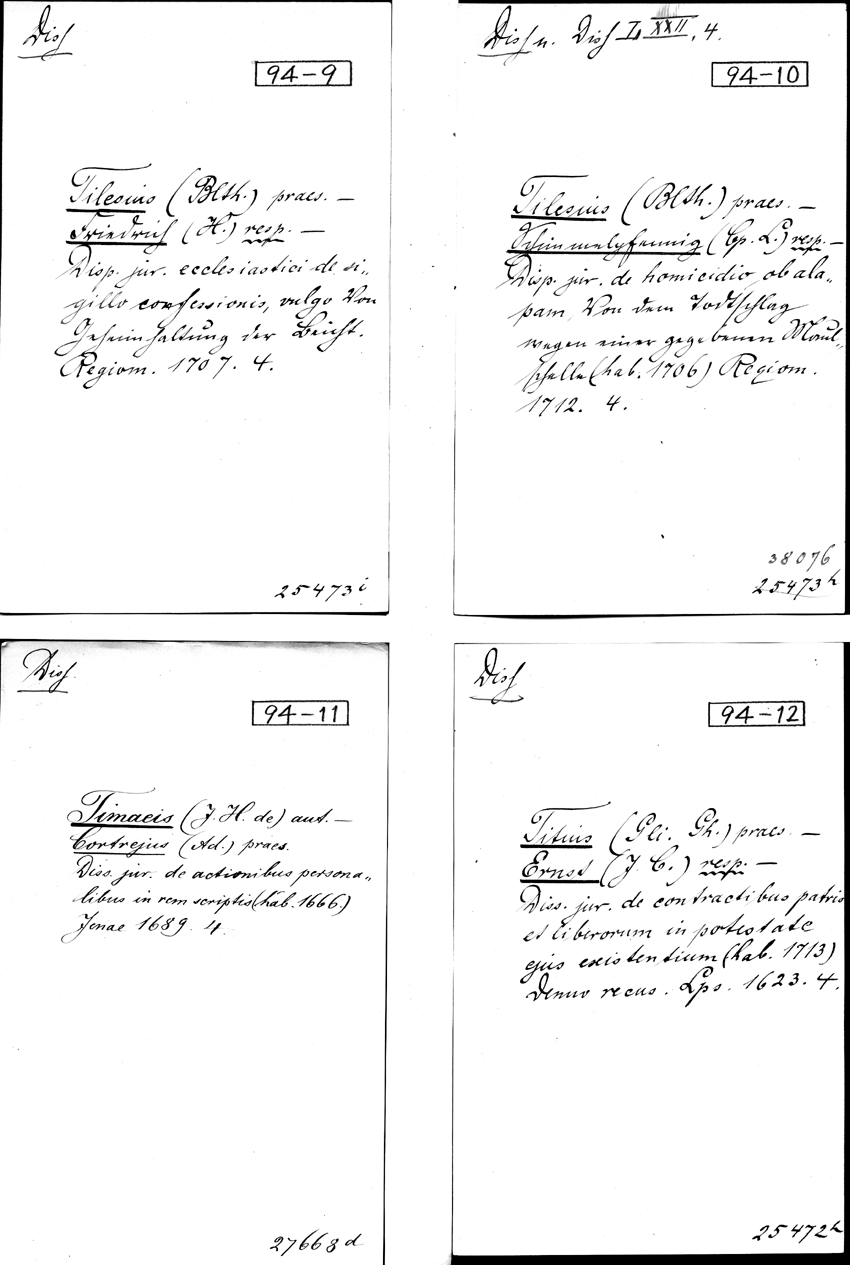 Diss
94-9
Tilesius (Blth.) praes. —
Friedrich (H.) resp. —
Disp. jur. ecclesiastici de si„
gillo confessionis, vulgo Von
Geheimhaltung der Beicht.
Regiom. 1707. 4.
25473i
Diss u. Diss I, XXII, 4.
94-10
Tilesius (Blth.) praes. —
Schimmelpfennig (Cp. L.) resp. —
Disp. jur. de homicidio ob ala„
pam, Von dem Todtschlag
wegen einer gegebenen Maul„
schelle (hab. 1706) Regiom.
1712. 4.
38076
25473h
Diss
94-11
Timaeis (J. H. de) aut. —
Cortrejus (Ad.) praes.
Diss. jur. de actionibus persona„
libus in rem scriptis (hab. 1666.)
Jenae 1689. 4.
27668d
Diss
94-12
Titius (Gli. Gh.) praes. —
Ernst (J. C.) resp. —
Diss. jur. de contractibus patris
et liberorum in potestate
ejus existentium (hab. 1713)
Denuo recus. Lps. 1623. 4.
25472h